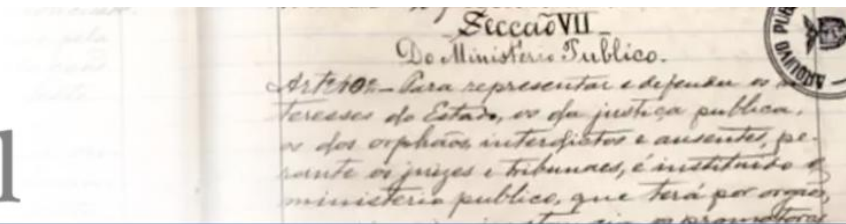 Secção VII
Do Ministerio Publico.
Art. 102 – Para representar e defender os in-
teresses do Estado, os da justiça publica,
os dos orphãos, interdictos e ausentes, pe-
rante os juizes e tribunaes, é instituido o
ministerio publico, que terá por orgãos,
os promotores
ARQUIVO PUB
l